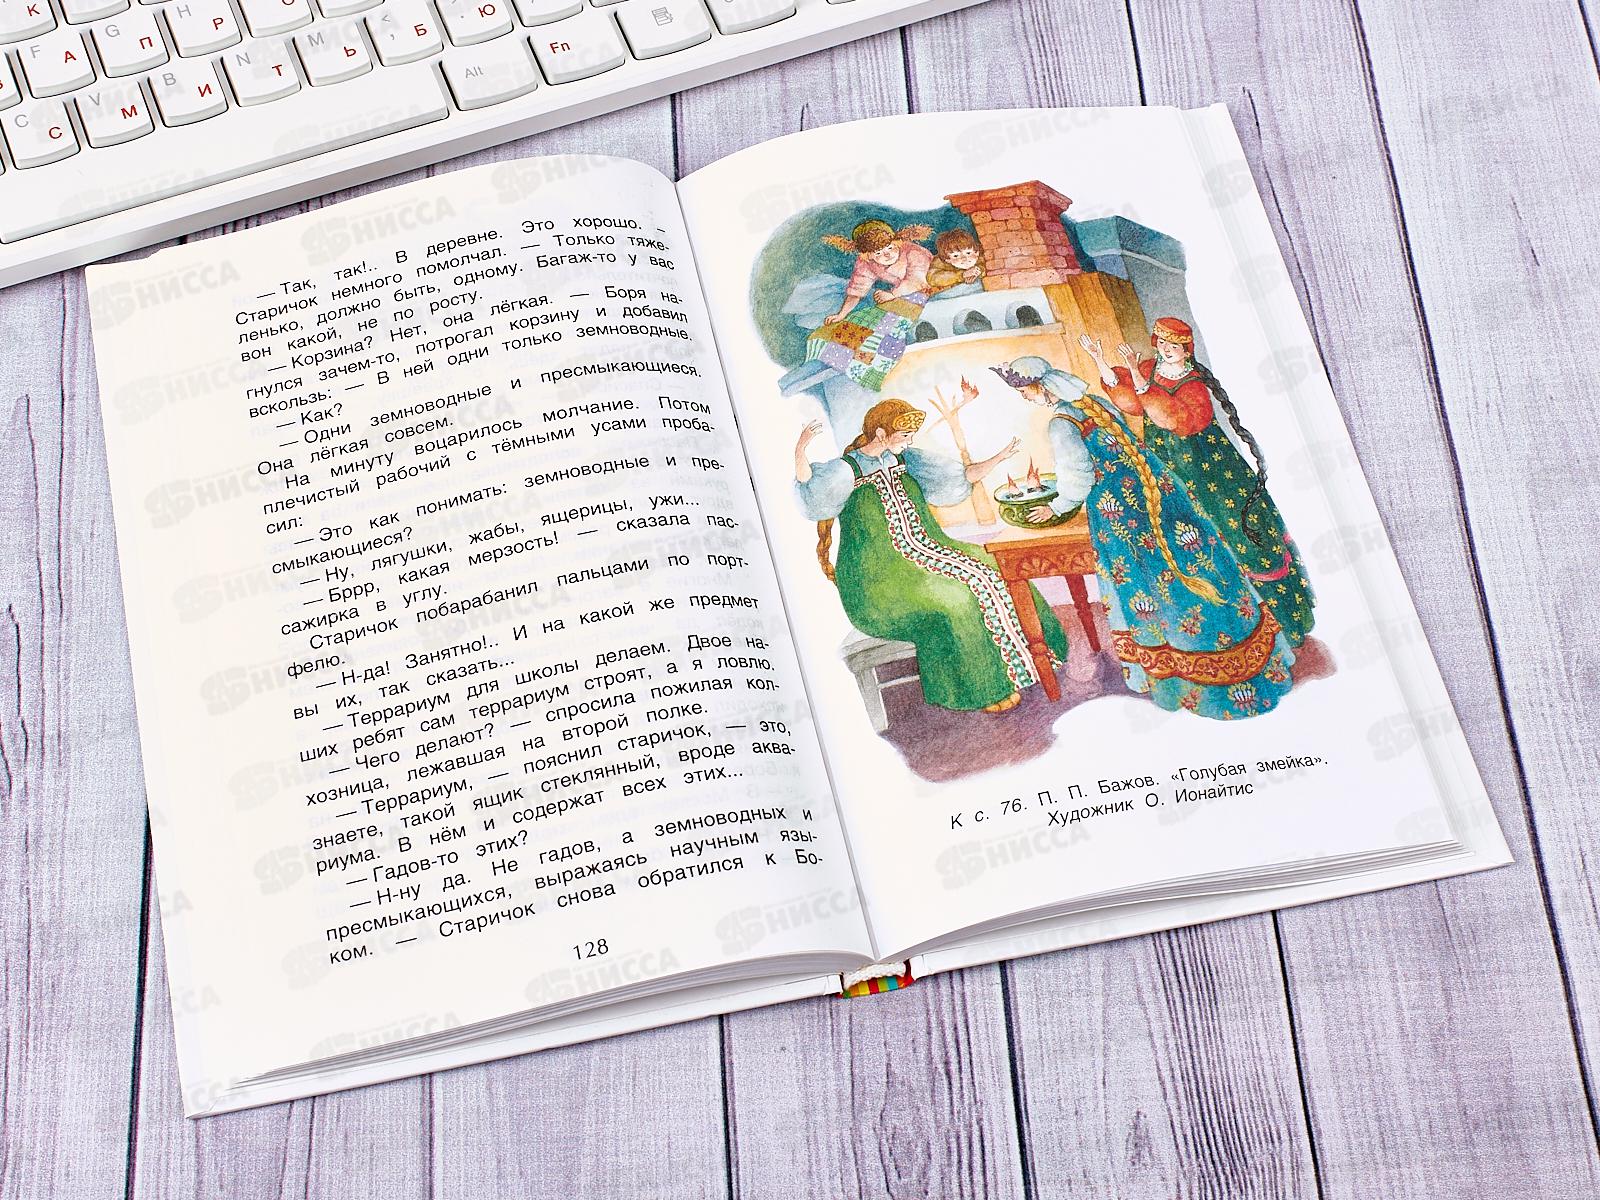 К
О
Ю
F А G П H Р
N Т M Ь < , Б
Alt
Fn
C С V М B И
— Так, так!.. В деревне. Это хорошо. –
Старичок немного помолчал. — Только тяже-
ленько, должно быть, одному. Багаж-то у вас
вон какой, не по росту.
— Корзина? Нет, она лёгкая. — Боря на-
гнулся зачем-то, потрогал корзину и добавил
вскользь: — В ней одни только земноводные.
— Как?
— Одни земноводные и пресмыкающиеся.
Она лёгкая совсем.
На минуту воцарилось молчание. Потом
плечистый рабочий с тёмными усами проба-
сил:
— Это как понимать: земноводные и пре-
смыкающиеся?
— Ну, лягушки, жабы, ящерицы, ужи...
— Бррр, какая мерзость! — сказала пас-
сажирка в углу.
Старичок побарабанил пальцами по порт-
фелю.
— Н-да! Занятно!.. И на какой же предмет
вы их, так сказать...
— Террариум для школы делаем. Двое на-
ших ребят сам террариум строят, а я ловлю.
— Чего делают? — спросила пожилая кол-
хозница, лежавшая на второй полке.
— Террариум, — пояснил старичок, — это,
знаете, такой ящик стеклянный, вроде аква-
риума. В нём и содержат всех этих...
— Гадов-то этих?
— Н-ну да. Не гадов, а земноводных и
пресмыкающихся, выражаясь научным язы-
ком. — Старичок снова обратился к Бо-
128
К с. 76. П. П. Бажов. «Голубая змейка».
Художник О. Ионайтис
НИССА